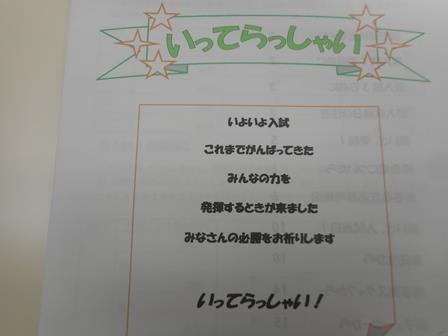 いってらっしゃい
いよいよ入試
これまでがんばってきた
みんなの力を
発揮するときが来ました
みなさんの必勝をお祈りします
いってらっしゃい！